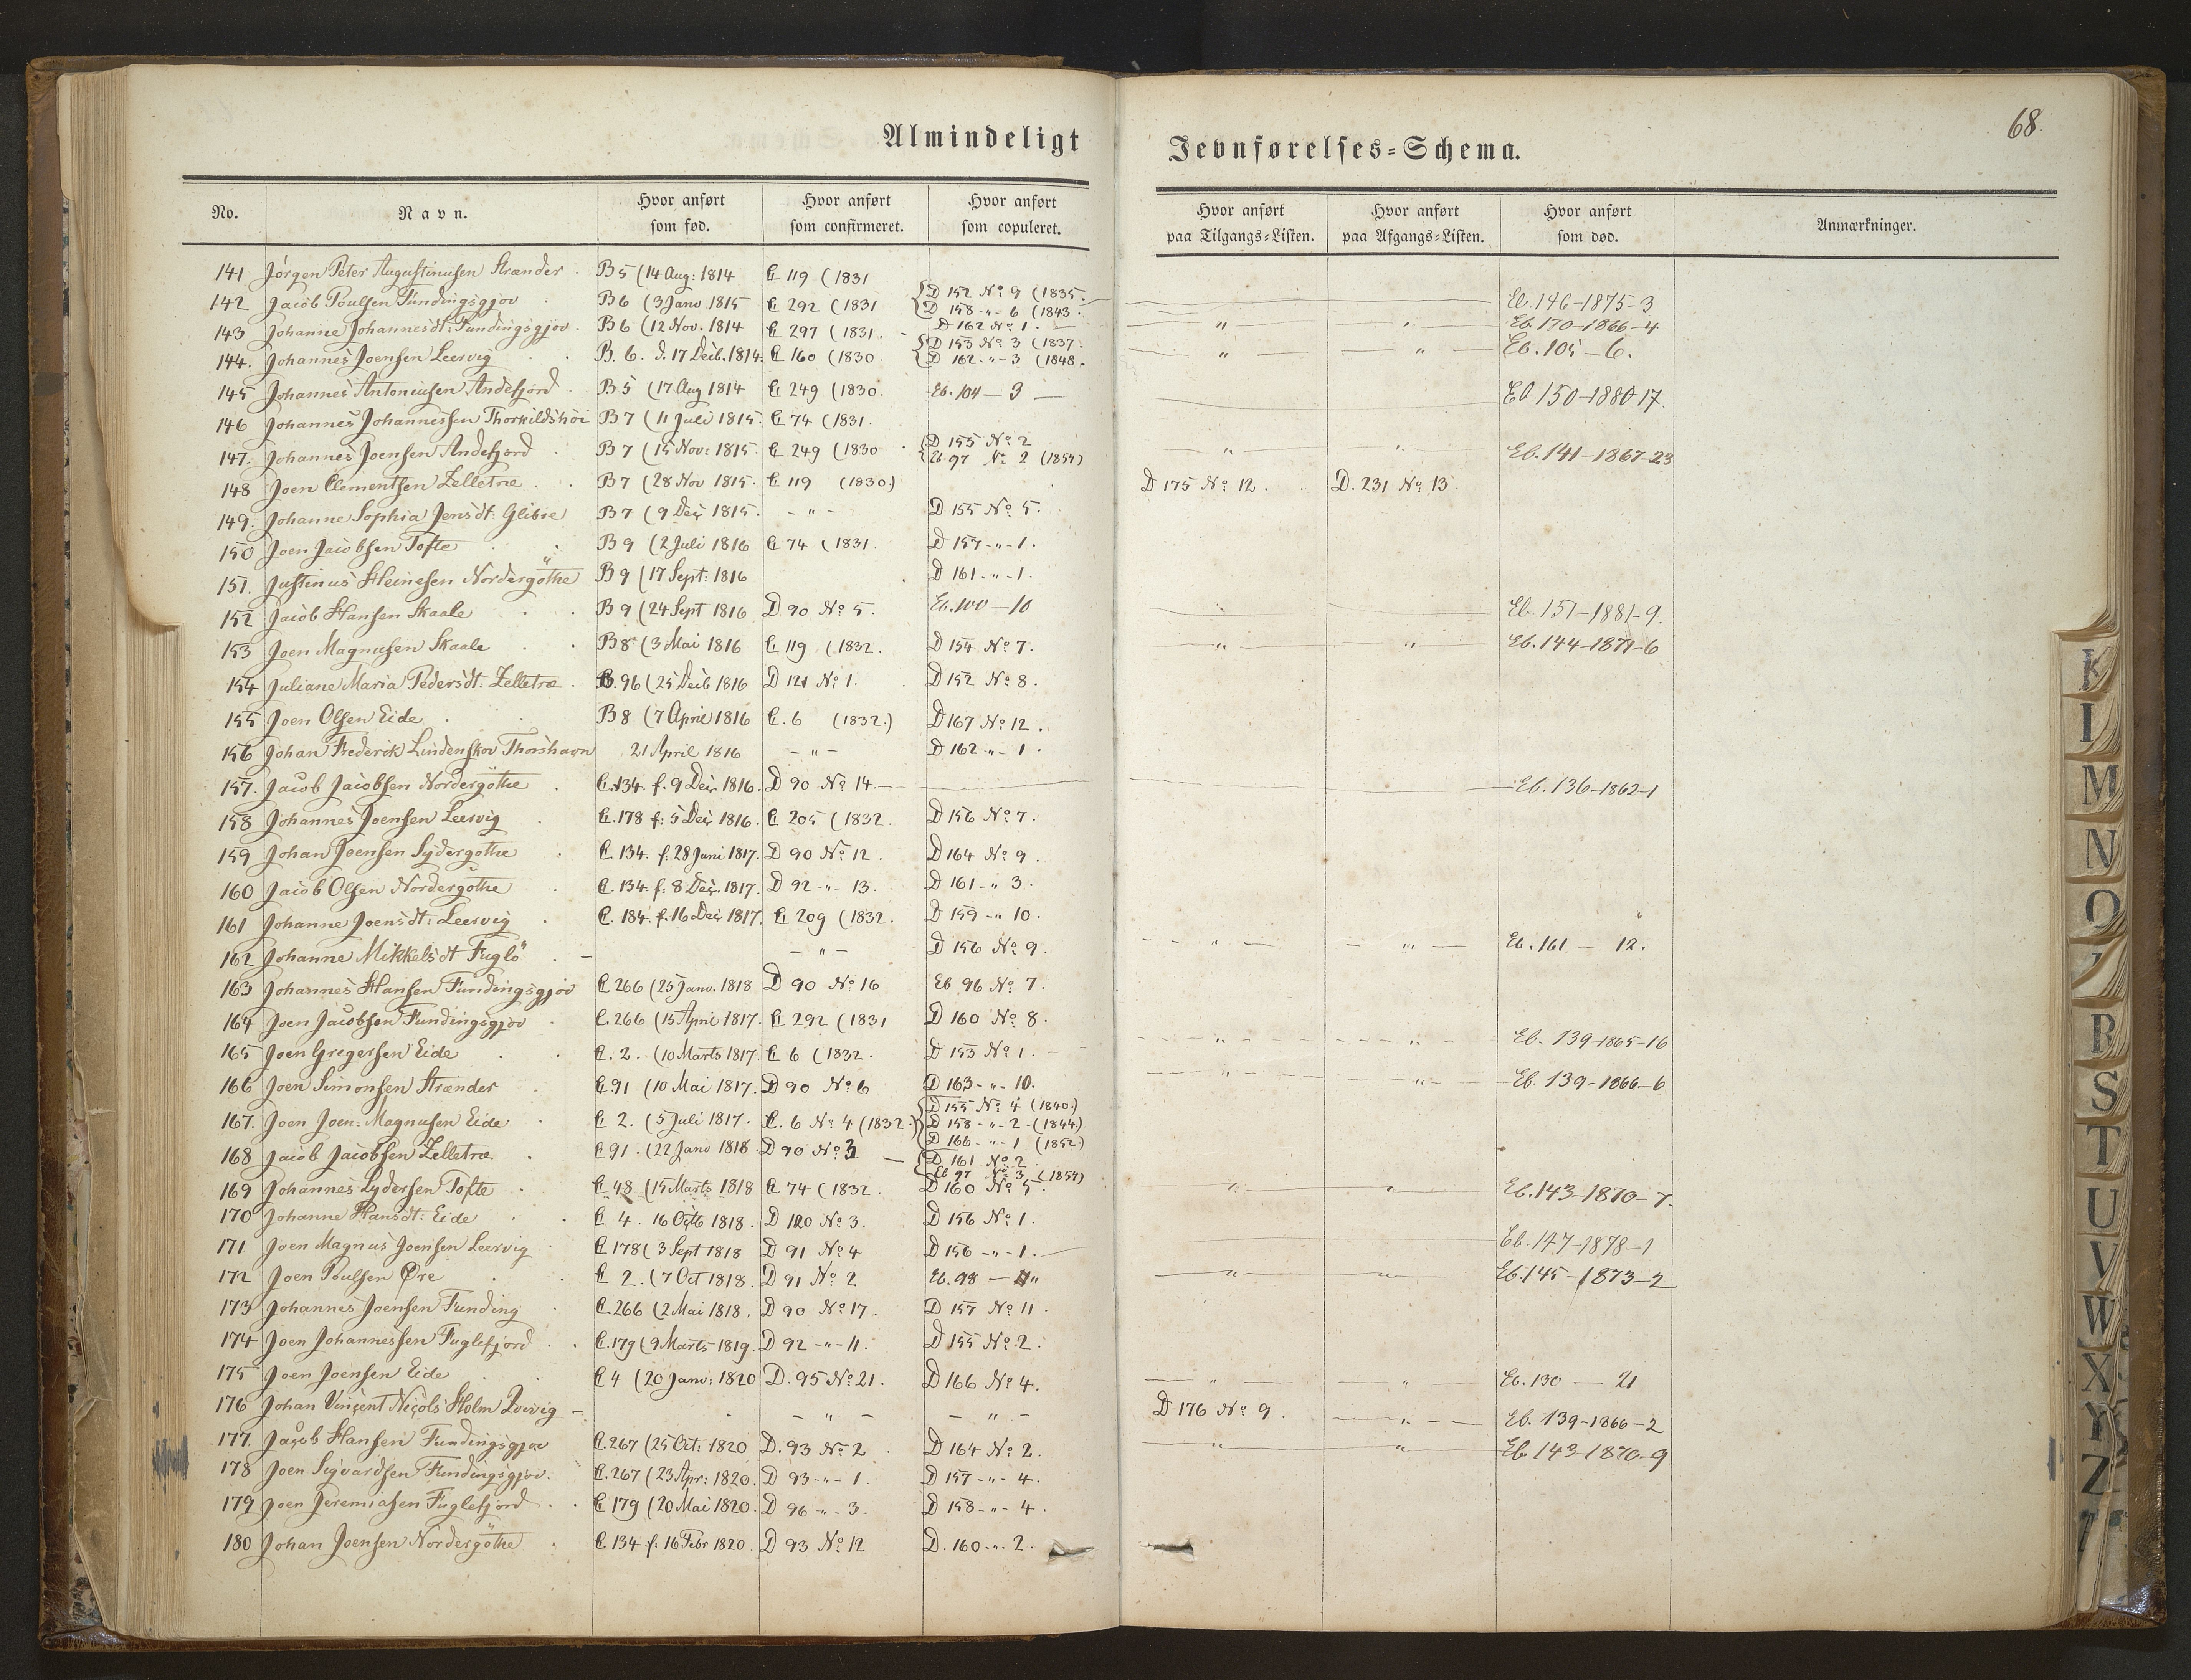 68.
Almindeligt Jevnførelses=Schema.
No. Navn. Hvor anført som fød. Hvor anført som confirmeret. Hvor anført som copuleret. Hvor anført paa Tilgangs=Listen. Hvor anført paa Afgangs=Listen. Hvor anført som død. Anmærkninger.
141 Jörgen Peter Augustinusen Strænder B 5 (14 Aug: 1814 C 119 (1831
142 Jacob Poulsen Fundingsgjov B 6 (3 Janv 1815 C 292 (1831 { D 152 No 9 (1835. D 158 -"- 6 (1843. Eb. 146-1875-3
143 Johanne Johannesdt: Fundingsgjov. B 6 (12 Nov. 1814 C 297 (1831. D 162 No 1. " " Eb 170-1866-4
144. Johannes Joensen Leervig B. 6. d. 17 Decb. 1814. C 160 (1830. { D 153 No 3 (1837. D 162 -"- 3 (1848. " " Eb. 105-6.
145 Johannes Antoniusen Andefjord B 5 (17 Aug 1814 C 249 (1830. Eb. 104 - 3 Eb 150-1880 17.
146 Johannes Johannessen Thorkildshöi B 7 (11 Juli 1815. C 74 (1831.
147. Johannes Joensen Andefjord B 7 (15 Nov: 1815. C 249 (1830 { D 155 No 2 Eb. 97 No 2 (1854) " " Eb. 141-1867-23
148 Joen Clementsen Zelletræ B 7 (28 Nov 1815. C 119 (1830.) D 175 No 12. D. 231 No 13
149. Johanne Sophia Jensdt: Glibre B 7 (9 Dec 1815. - " - D 155 No 5.
150 Joen Jacobsen Tofte B 9 (2 Juli 1816 C 74 (1831. D 157 -"- 1.
151. Justinus Heinesen Nordergöthe B 9 (17 Sept: 1816 D 161 -"- 1.
152 Jacob Hansen Skaale B 9 (24 Sept 1816 D 90 No 5. Eb. 100 - 10 Eb. 151-1881-9.
153 Joen Magnusen Skaale B 8 (3 Mai 1816 C 119 (1832. D 154 No 7. " " Eb. 144-1871-6
154 Juliane Maria Pedersdt: Zelletræ B. 96 (25 Decb 1816 D 121 No 1. D 152 No 8.
155 Joen Olsen Eide B 8 (7 April 1816 C. 6 (1832.) D 167 No 12.
156 Johan Frederik Lindenskov Thorshavn 21 April 1816 - " - D 162 -"- 1.
157. Jacob Jacobsen Nordergöthe C. 134. f. 9 Dec. 1816. D 90 No 14. Eb. 136-1862-1
158 Johannes Joensen Leervig C. 178 f: 5 Dec 1816. C 205 (1832. D 156 No 7.
159 Johan Joensen Sydergöthe C. 134. f. 28 Juni 1817. D 90 No 12. D 164 No 9.
160 Jacob Olsen Nordergöthe C. 134. f: 8 Dec. 1817. D 92 -"- 13. D 161 -" 3.
161 Johanne Joensdt: Leervig C. 184. f. 16 Dec 1817. C 209 (1832. D 159 -" 10.
162 Johanne Mikkelsdt Fuglö - - " - D 156 No 9. " " Eb. 161 - 12.
163 Johannes Hansen Fundingsgjov C 266 (25 Janv. 1818 D 90 No 16 Eb 96 No 7.
164 Joen Jacobsen Fundingsgjov C. 266 (15 April 1817. C 292 (1831 D 160 No 8.
165 Joen Gregersen Eide C. 2. (10 Marts 1817. C 6 (1832. D 153 No 1. " " Eb. 139-1865-16
166 Joen Simonsen Strænder C 91 (10 Mai 1817. D 90 No 6 D 163 -"- 10. " " Eb. 139-1866-6
167. Joen Joen: Magnusen Eide C 2. (5 Juli 1817. C. 6 No 4 (1832.) { D 155 No 4 (1840.) D 158 -"- 2 (1844.) D 166 -"- 1 (1852.)
168 Jacob Jacobsen Zelletræ C 91. (22 Janv 1818 D 90 No 3 { D 161 No 2. Eb 97 No 3 (1854)
169 Johannes Lydersen Tofte C 48 (15 Marts 1818 C 74 (1832. D 160 No 5. " " Eb. 143-1870-7.
170 Johanne Hansdt: Eide C 4. 16 Octb 1818. D 120 No 3. D 156 No 1.
171 Joen Magnus Joensen Leervig C 178 (3 Sept 1818 D 91 No 4 D 156 -"- 1. Eb. 147-1878-1
172 Joen Poulsen Øre C 2. (7 Oct 1818. D 91 No 2 Eb. 98 - " " Eb. 145-1873-2
173 Johannes Joensen Funding C. 266 (2 Mai 1818. D 90 No 17. D 157 No 11.
174 Joen Johannessen Fuglefjord C. 179 (9 Marts 1819. D 92 -"- 11. D 155 No 2.
175 Joen Joensen Eide C 4 (20 Janv: 1820 D. 95 No 21. D 166 No 4. " " Eb. 130 - 21
176 Johan Vinçent Niçols Holm Qvivig - - " - - " - D 176 No 9. " Eb. 139-1866-2
177. Jacob Hansen Fundingsgjov C. 267 (25 Oct: 1820 D. 93 No 2 D 164 No 2. " " Eb 143-1870-9
178 Joen Sigvardsen Fundingsgjov. C. 267 (23 Apr: 1820. D 93 -"- 1. D 157 -"- 4.
179 Joen Jeremiasen Fuglefjord C 179 (20 Mai 1820. D 96 -"- 3. D 158 -"- 4.
180 Johan Joensen Nordergöthe C 134 f: 16 Febr 1820. D 93 No 12 D. 160 -"- 2.
K
L
M
N
O
R
S
T
U
V
W
X
Y
Z